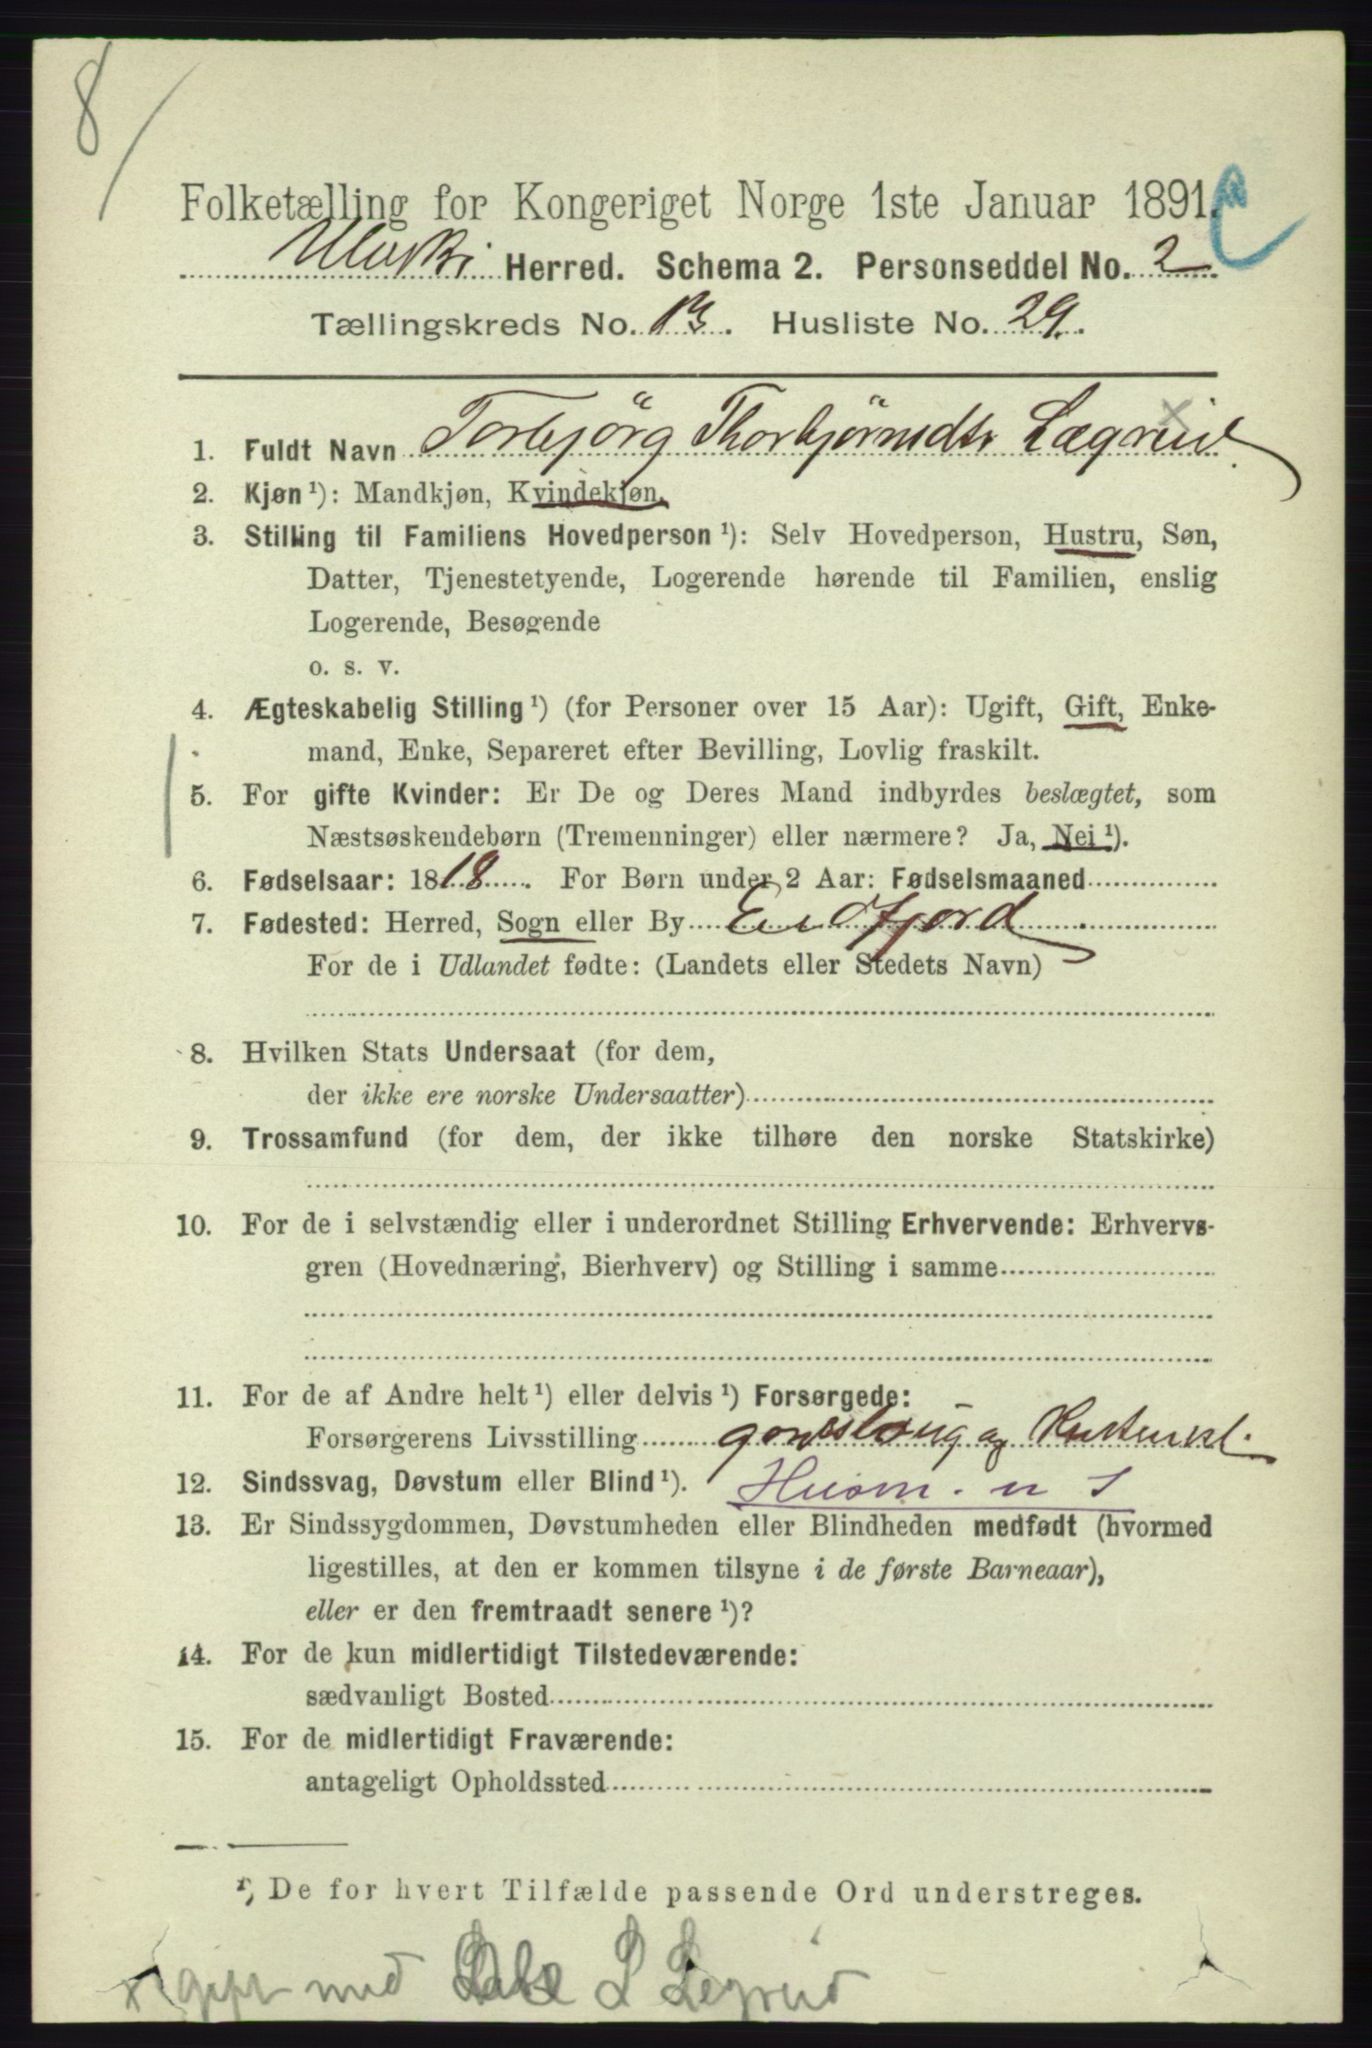 8/
Folketælling for Kongeriget Norge 1ste Januar 1891.
Herred. Schema 2. Personseddel No. 2
Tællingskreds No. 13. Husliste No. 29.
1. Fuldt Navn Torbjörg Thorbjörnsdtr Lægreid
2. Kjøn ¹): Mandkjøn, Kvindekjøn.
3. Stilling til Familiens Hovedperson ¹): Selv Hovedperson, Hustru, Søn,
Datter, Tjenestetyende, Logerende hørende til Familien, enslig
Logerende, Besøgende
o. s. v.
4. Ægteskabelig Stilling ¹) (for Personer over 15 Aar): Ugift, Gift, Enke-
mand, Enke, Separeret efter Bevilling, Lovlig fraskilt.
5. For gifte Kvinder: Er De og Deres Mand indbyrdes beslægtet, som
Næstsøskendebørn (Tremenninger) eller nærmere? Ja, Nei ¹).
6. Fødselsaar: 1818. For Børn under 2 Aar: Fødselsmaaned
7. Fødested: Herred, Sogn eller By Eidfjord
For de i Udlandet fødte: (Landets eller Stedets Navn)
8. Hvilken Stats Undersaat (for dem,
der ikke ere norske Undersaatter)
9. Trossamfund (for dem, der ikke tilhøre den norske Statskirke)
10. For de i selvstændig eller i underordnet Stilling Erhvervende: Erhvervs-
gren (Hovednæring, Bierhverv) og Stilling i samme
11. For de af Andre helt ¹) eller delvis ¹) Forsørgede:
Forsørgerens Livsstilling
12. Sindssvag, Døvstum eller Blind ¹). Husm.
13. Er Sindssygdommen, Døvstumheden eller Blindheden medfødt (hvormed
ligestilles, at den er kommen tilsyne i de første Barneaar),
eller er den fremtraadt senere ¹)?
14. For de kun midlertidigt Tilstedeværende:
sædvanligt Bosted
15. For de midlertidigt Fraværende:
antageligt Opholdssted
¹) De for hvert Tilfælde passende Ord understreges.
x gift med L Legreid